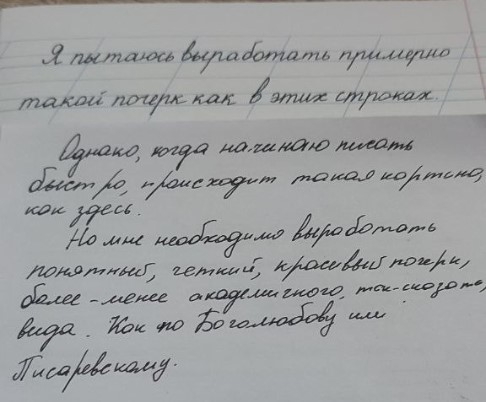 Я пытаюсь выработать примерно
такой почерк как в этих строках.
Однако, когда начинаю писать
быстро, происходит такая картина,
как здесь.
Но мне необходимо выработать
понятный, четкий, красивый почерк,
более-менее академичного, так-сказать,
вида. Как по Боголюбову или
Писаревскому.